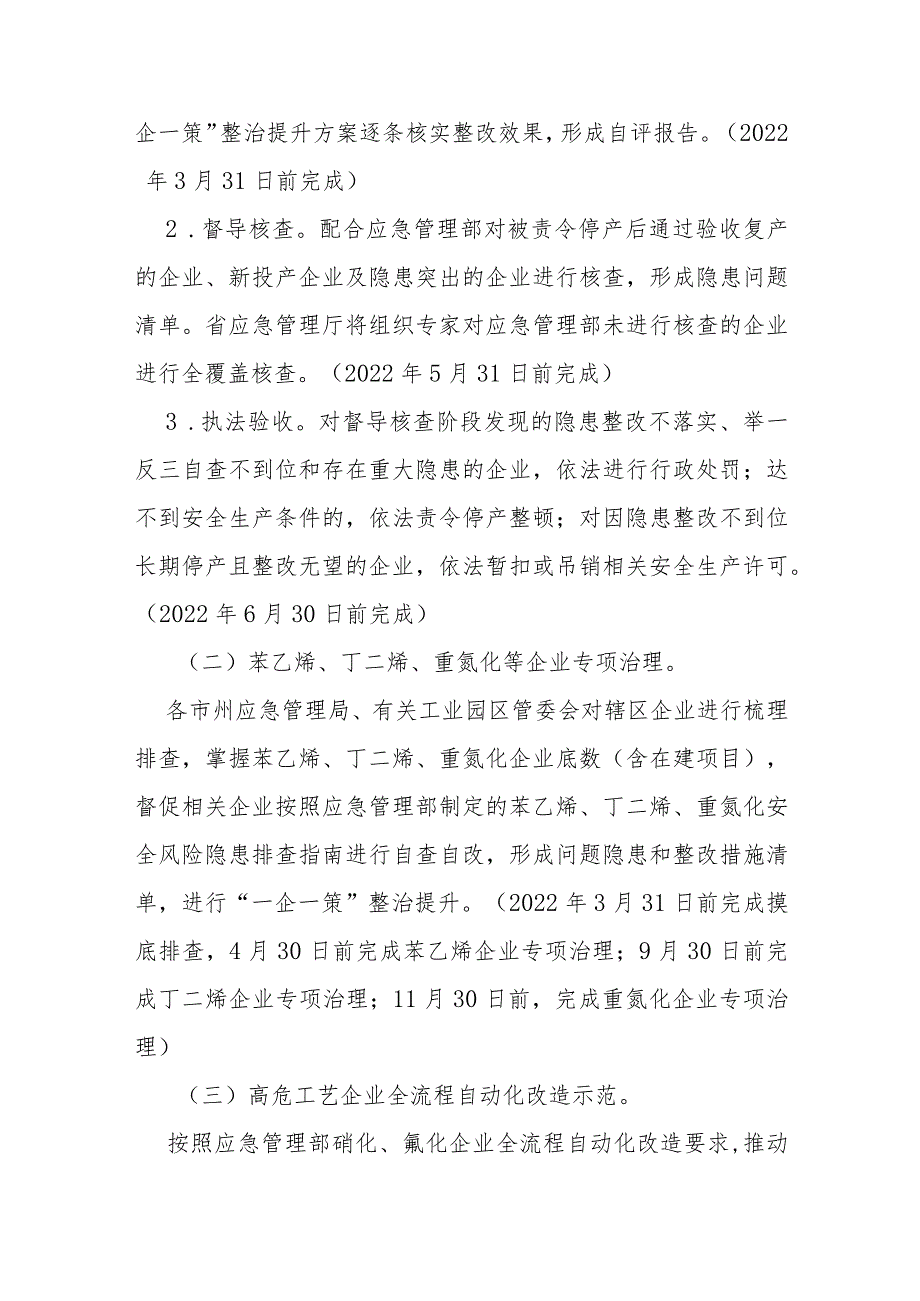 企一策”整治提升方案逐条核实整改效果,形成自评报告。（2022
年3月31日前完成）
2.督导核查。配合应急管理部对被责令停产后通过验收复产
的企业、新投产企业及隐患突出的企业进行核查，形成隐患问题
清单。省应急管理厅将组织专家对应急管理部未进行核查的企业
进行全覆盖核查。（2022年5月31日前完成）
3.执法验收。对督导核查阶段发现的隐患整改不落实、举一
反三自查不到位和存在重大隐患的企业，依法进行行政处罚；达
不到安全生产条件的，依法责令停产整顿；对因隐患整改不到位
长期停产且整改无望的企业，依法暂扣或吊销相关安全生产许可。
（2022年6月30日前完成）
（二）苯乙烯、丁二烯、重氮化等企业专项治理。
各市州应急管理局、有关工业园区管委会对辖区企业进行梳理
排查，掌握苯乙烯、丁二烯、重氮化企业底数（含在建项目），
督促相关企业按照应急管理部制定的苯乙烯、丁二烯、重氮化安
全风险隐患排查指南进行自查自改，形成问题隐患和整改措施清
单，进行“一企一策”整治提升。（2022年3月31日前完成摸
底排查，4月30日前完成苯乙烯企业专项治理；9月30日前完
成丁二烯企业专项治理；11月30日前，完成重氮化企业专项治
理）
（三）高危工艺企业全流程自动化改造示范。
按照应急管理部硝化、氟化企业全流程自动化改造要求,推动